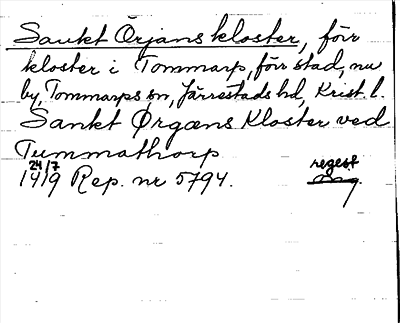 Sankt Örjans kloster, förr
kloster i Tommarp, förr stad, nu
by, Tommarps sn, Järrestads hd, Krist. l.
Sankt Ørgæns Kloster ved
Tummathorp
24/7
1419 Rep. nr 5794. regest